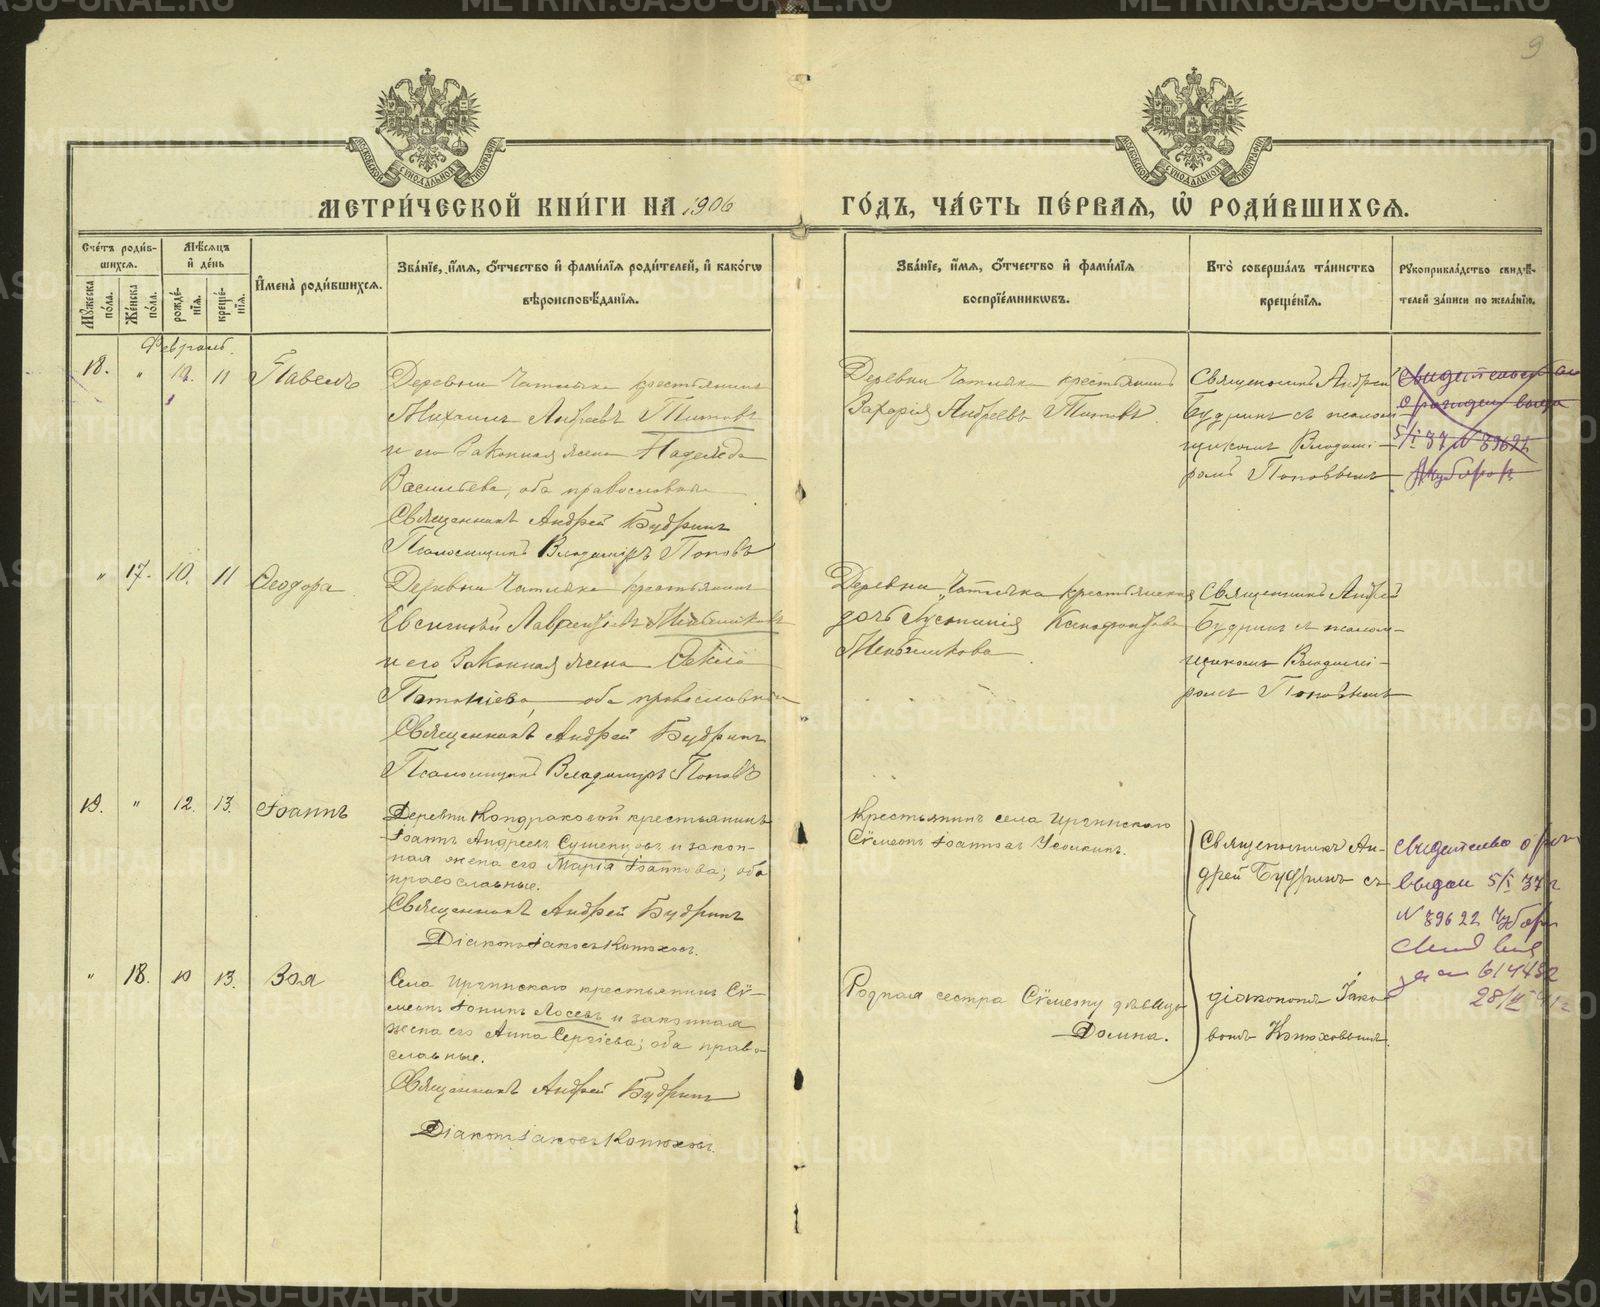 9
МЕТРИ́ЧЕСКОЙ КНИ́ГИ НА 1906 ГО́ДЪ, ЧА́СТЬ ПЕ́РВАЯ, Ѡ РОДИ́ВШИХСЯ.
Сче́тъ роди́вшихся.
Мꙋ́жеска по́ла.
Же́нска по́ла.
Мѣ́сяцъ и҆ де́нь
рожде́нїя.
креще́нїя.
И҆мена̀ роди́вшихся.
Зва́нїе, и҆́мя, ѻ҆́тчество и҆ фами́лїя роди́телей, и҆ како́гѡ
вѣроисповѣ́данїя.
Зва́нїе, и҆́мя, ѻ҆́тчество и҆ фами́лїя
воспрїе́мникѡвъ.
Кто̀ соверша́лъ та́инство
креще́нїя.
Рꙋкоприкла́дство свидѣ́-
телей за́писи по жела́нїю.
Февраль.
18. " 10. 11 Павелъ
Деревни Чатлыка крестьянинъ
Михаилъ Андреевъ Титовъ
и его законная жена Надежда
Васильева, оба православные
Священникъ Андрей Будринъ
Псаломщикъ Владимiръ Поповъ
Деревни Чатлыка крестьянинъ
Захарiя Андреевъ Титовъ.
Священникъ Андрей
Будринъ съ псалом-
щикомъ Владимi-
ромъ Поповымъ
5/I 37 № 89622
" 17. 10. 11 Ѳеодора
Деревни Чатлыка крестьянинъ
Евсигнѣй Лаврентьевъ
и его законная жена Ѳекла
оба православные
Священникъ Андрей Будринъ
Псаломщикъ Владимiръ Поповъ
Деревни Чатлыка крестьянская
дочь Ксенофонтова
Священникъ Андрей
Будринъ съ псалом-
щикомъ Владимi-
ромъ Поповымъ
19. " 12. 13. Iоаннъ
Деревни Кондраковой крестьянинъ
Iоаннъ Андреевъ Сушенцовъ и закон-
ная жена его Марiя Iоаннова; оба
православные.
Священникъ Андрей Будринъ
Дiаконъ Iаковъ Конюховъ.
Крестьянинъ села Иргинскаго
Сѵмеонъ Iоанновъ
Священникъ Ан-
дрей Будринъ съ
Свидетельство о рож
выдан 5/I 37 г
№ 89622
28/
" 18. 10 13. Зоя
Села Иргинскаго крестьянинъ Сѵ-
меонъ Лосевъ и законная
жена его Анна Сергiева; оба право-
славные.
Священникъ Андрей Будринъ
Дiаконъ Iаковъ Конюховъ.
Родная сестра Сѵмеону дѣвица
Домна.
дiакономъ Iако-
вомъ Конюховымъ.
METRIKI.GASO-URAL.RU